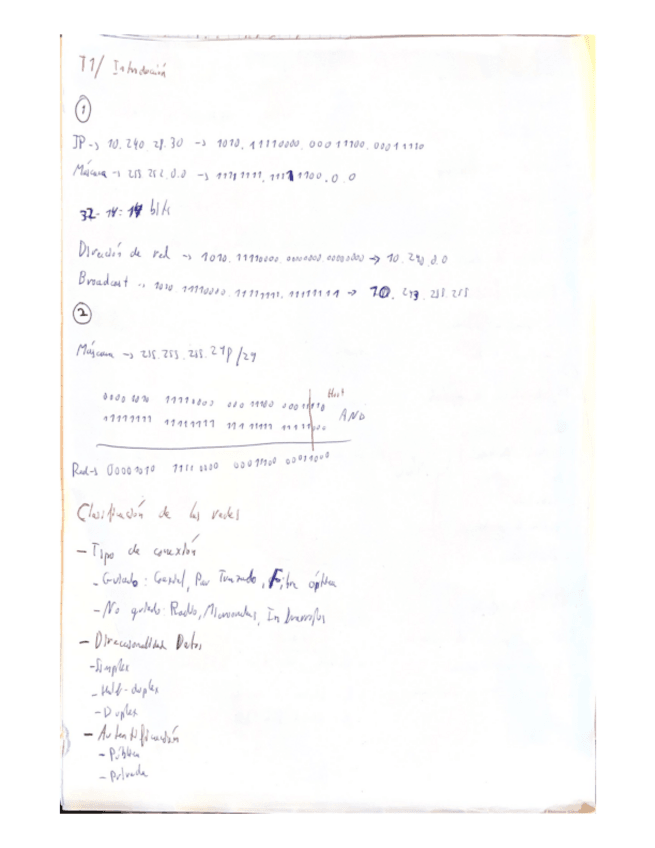 T1/ Introducción
1
IP -> 10. 240. 28. 30 -> 1010. 11110000. 00011100. 00011110
Máscara -> 255 252. 0.0 -> 11111111. 11111100. 0. 0
32- 14: bits
Dirección de red -> 1010. 11110000. 00000000. 00000000 -> 10. 240. 0.0
Broadcast -> 1010. 11110000. 11111111. 11111111 -> 10. 243. 255. 255
2
Máscara -> 255. 255. 255. /29
Host
00001010 11110000 00011100 00011110
11111111 11111111 11111111 11111000 AND
Red-> 00001010 11110000 00011100 00011000
Clasificación de las redes
- Tipo de conexión
- Guiado: Coaxial, Par Trenzado, Fibra óptica
- No guiado: Radio, Microondas, Infrarrojos
- Direccionalidad Datos
- Simplex
- Half-duplex
- Duplex
- Autentificación
- Pública
- Privada